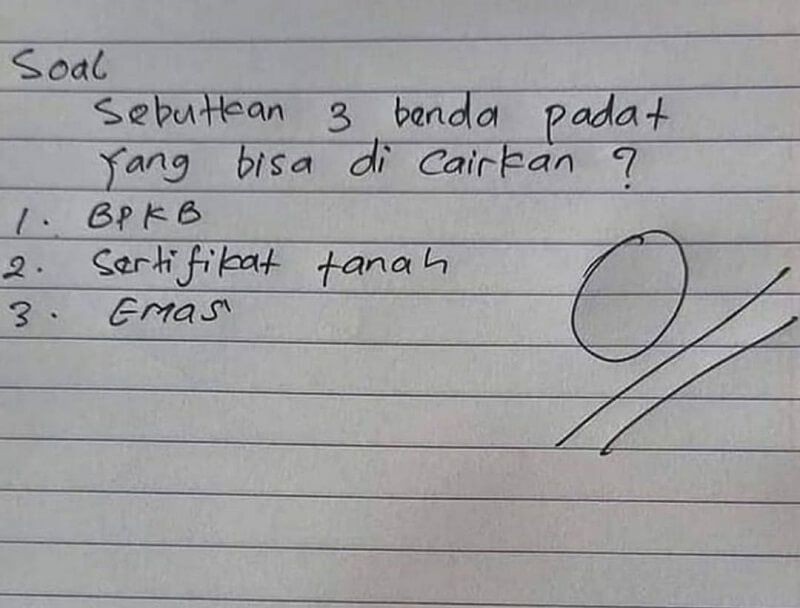 Soal
Sebutkan 3 benda padat
yang bisa di cairkan ?
1. BPKB
2. Sertifikat tanah
3. Emas
0